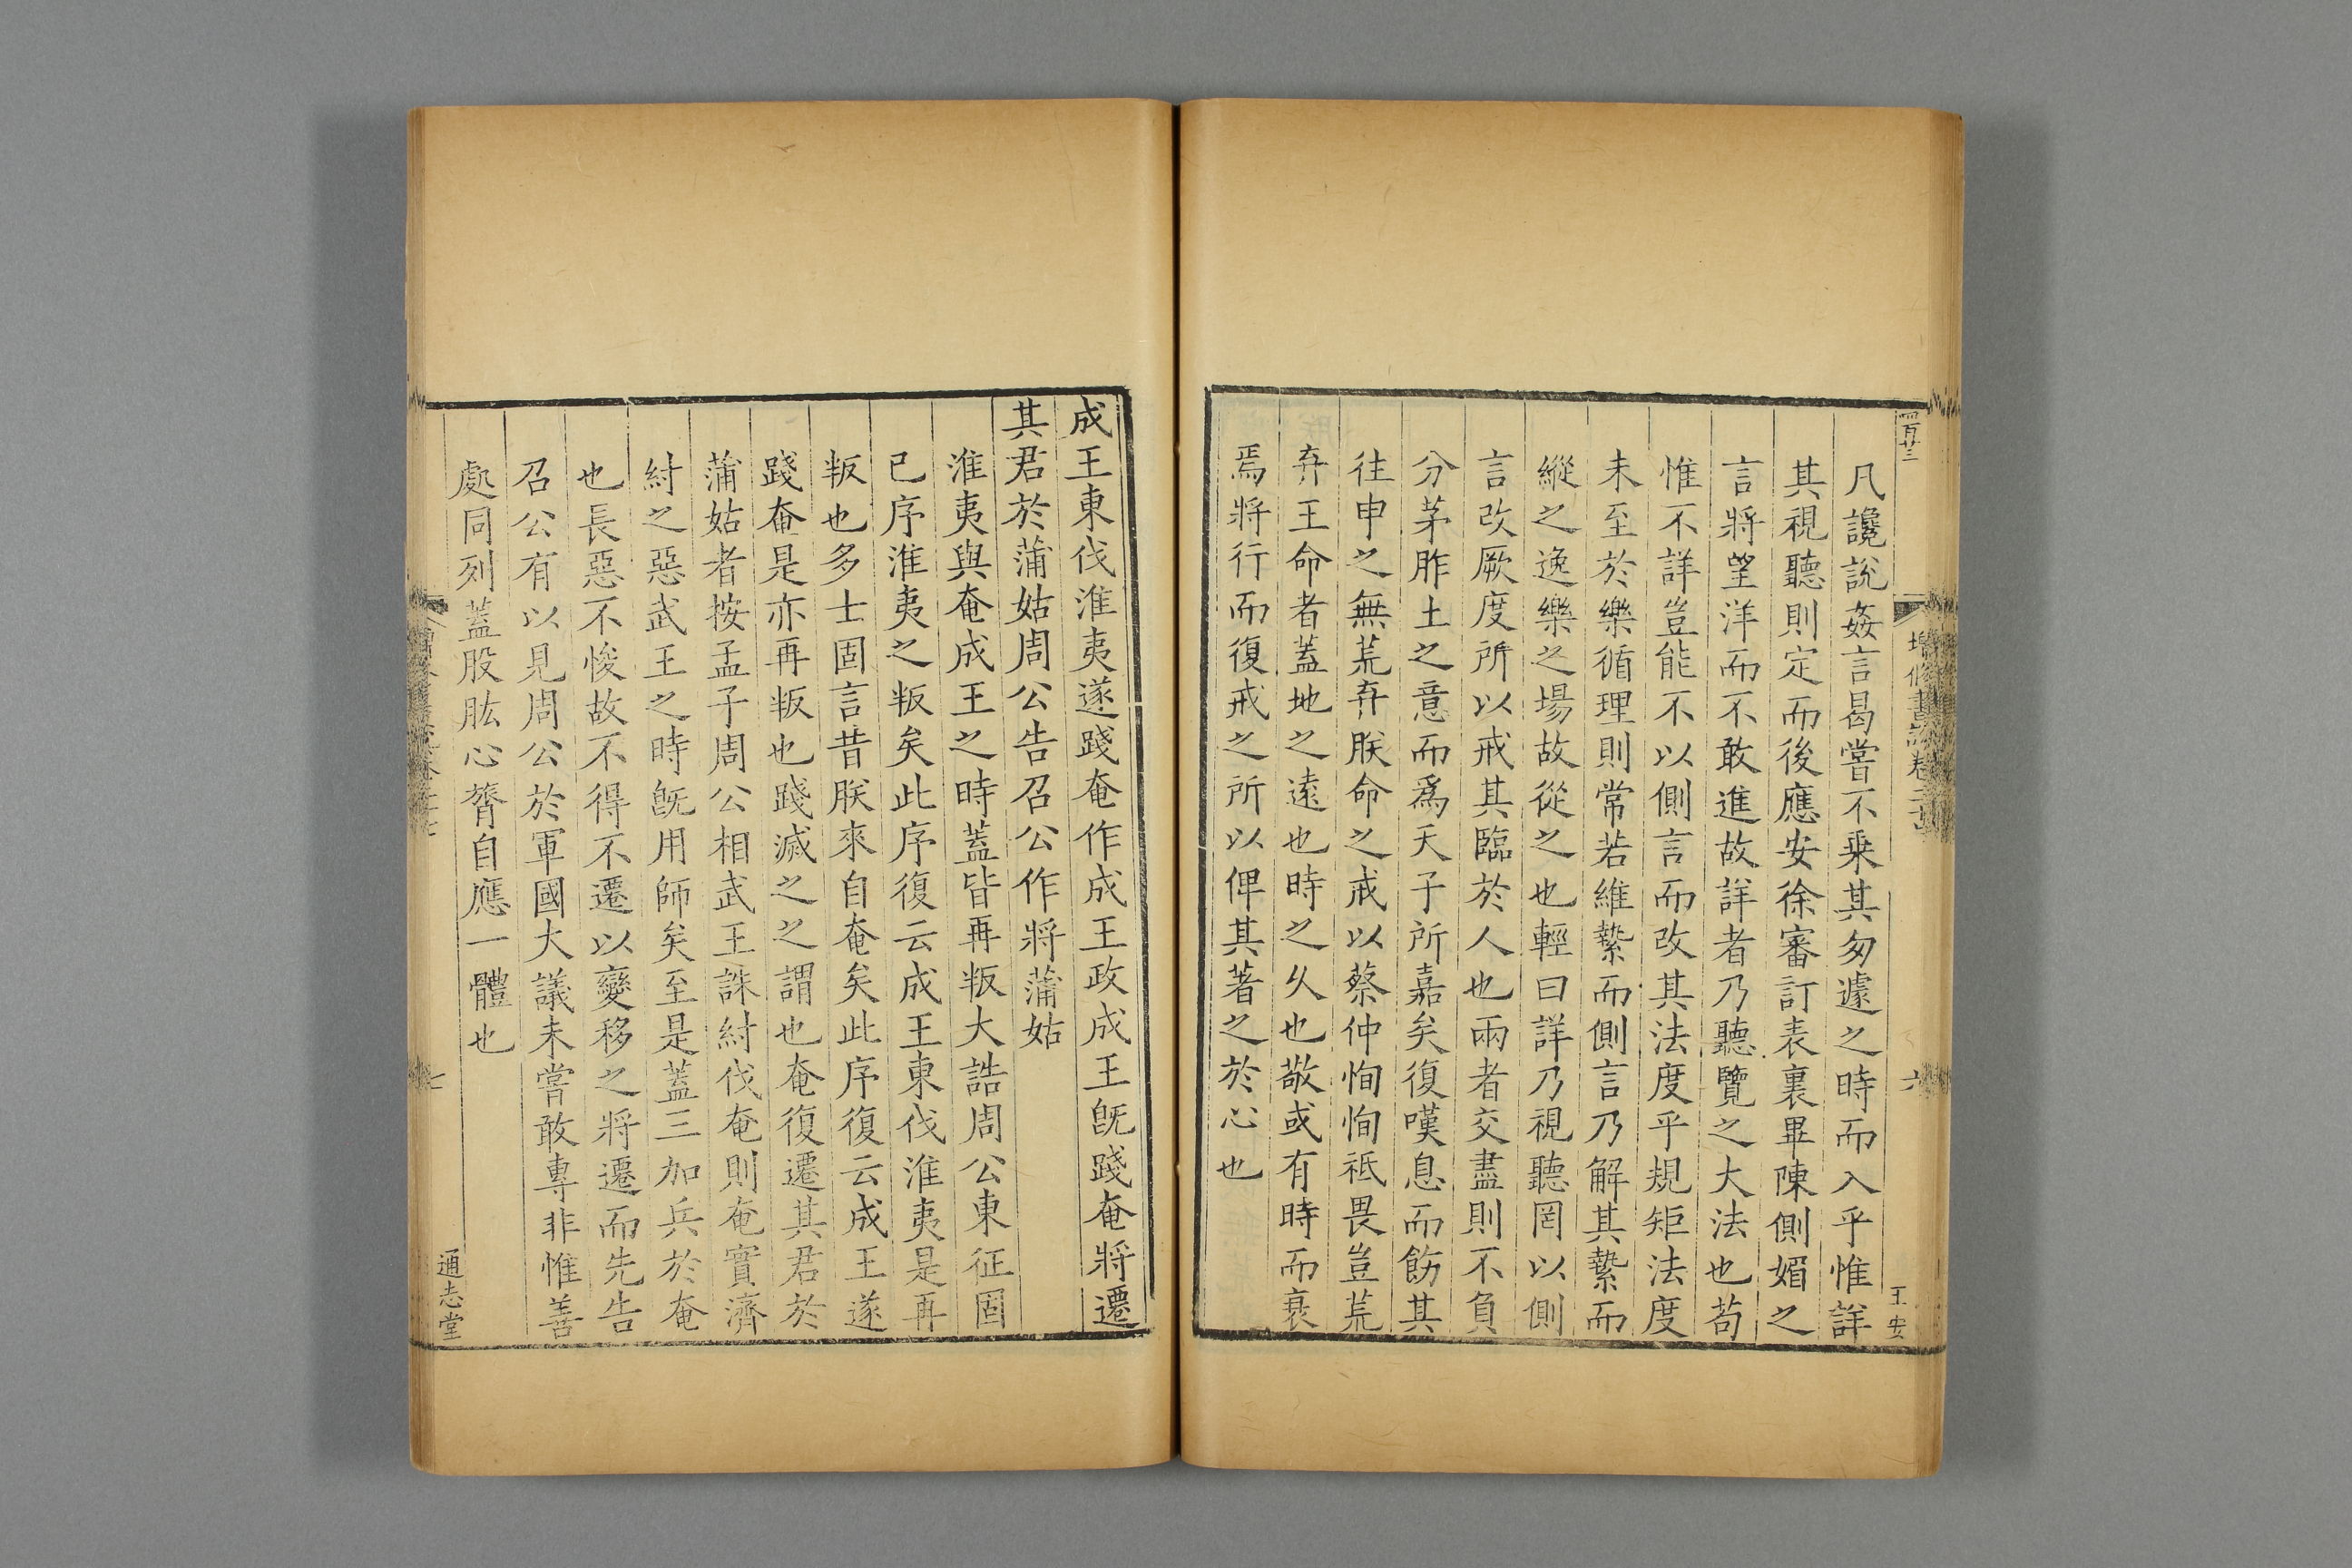 凡讒說姦言曷嘗不乗其匆遽之時而入乎惟詳
其視聽則定而後應安徐審訂表裏畢陳側媚之
言將望洋而不敢進故詳者乃聽覽之大法也苟
惟不詳豈能不以側言而改其法度乎規矩法度
未至於樂循理則常若維縶而側言乃解其縶而
縱之逸樂之場故從之也輕曰詳乃視聽罔以側
言改厥度所以戒其臨於人也兩者交盡則不負
分茅胙土之意而爲天子所嘉矣復嘆息而飭其
往申之無荒弃朕命之戒以蔡仲恂恂祗畏豈荒
弃王命者蓋地之遠也時之乆也敬或有時而衰
焉將行而復戒之所以俾其著之於心也
王安
成王東伐淮夷遂踐奄作成王政成王旣踐奄將遷
其君於蒲姑周公告召公作將蒲姑
淮夷與奄成王之時蓋皆再叛大誥周公東征固
已序淮夷之叛矣此序復云成王東伐淮夷是再
叛也多士固言昔朕來自奄矣此序復云成王遂
踐奄是亦再叛也踐滅之之謂也奄復遷其君於
蒲姑者按孟子周公相武王誅紂伐奄則奄實濟
紂之惡武王之時旣用師矣至是蓋三加兵於奄
也長惡不悛故不得不遷以變移之將遷而先告
召公有以見周公於軍國大議未嘗敢專非惟善
處同列蓋股肱心膂自應一體也
通志堂